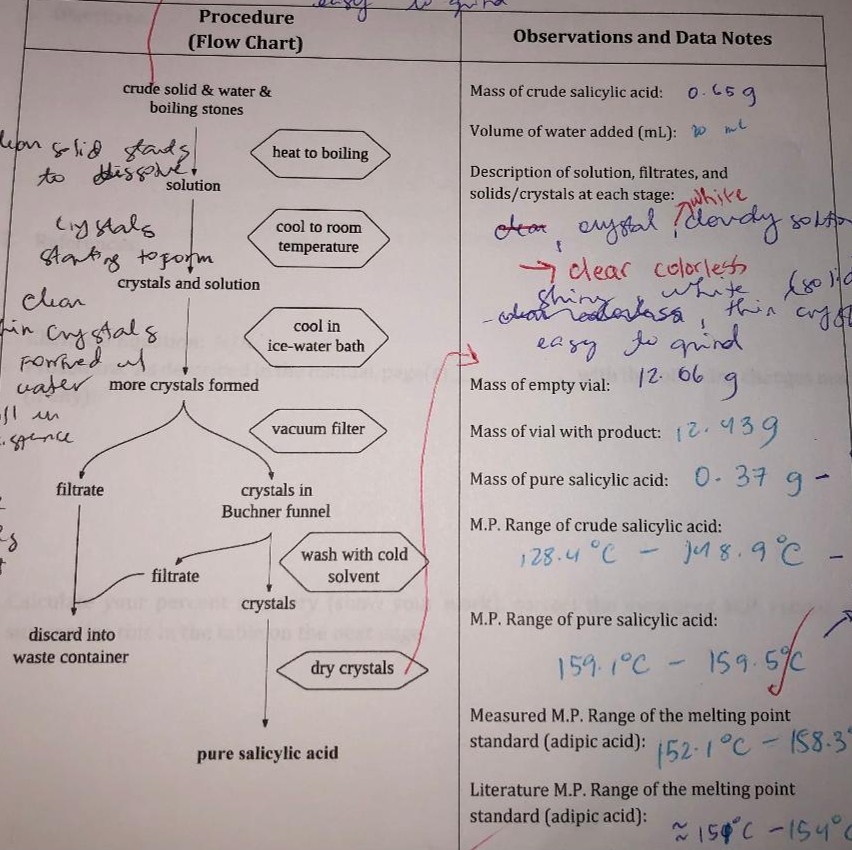 easy to grind
Procedure
(Flow Chart)
Observations and Data Notes
crude solid & water &
boiling stones
solid starts
to dissolve
heat to boiling
solution
crystals
starting to form
cool to room
temperature
crystals and solution
clear
crystals
formed
water
cool in
ice-water bath
more crystals formed
vacuum filter
filtrate
crystals in
Buchner funnel
wash with cold
solvent
filtrate
crystals
discard into
waste container
dry crystals
pure salicylic acid
Mass of crude salicylic acid: 0.65 g
Volume of water added (mL): mL
Description of solution, filtrates, and
solids/crystals at each stage: white
clear, crystal, cloudy
→ clear colorless
shiny, white
thin
easy to grind
Mass of empty vial: 12.06 g
Mass of vial with product: 12.43 g
Mass of pure salicylic acid: 0.37 g -
M.P. Range of crude salicylic acid:
128.4 °C - 148.9 °C -
M.P. Range of pure salicylic acid:
159.1°C - 159.5°C
Measured M.P. Range of the melting point
standard (adipic acid): 152.1°C - 158.3°
Literature M.P. Range of the melting point
standard (adipic acid):
≈ 151°C - 154°C